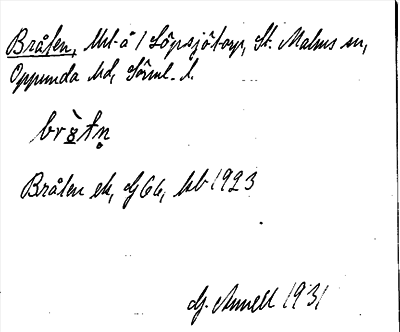 Bråten, Utt-å i Löpsjötorp, St. Malms sn,
Oppunda hd, Sörml. l.
Bråten ek, G 66, kb 1923
G. Annell 1931